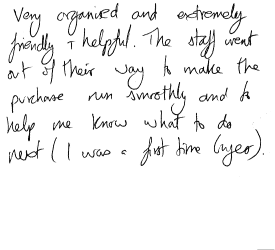 Very organised and extremely
friendly + helpful. The staff went
out of their way to make the
purchase run smoothly and to
help me know what to do
next (I was a first time buyer).